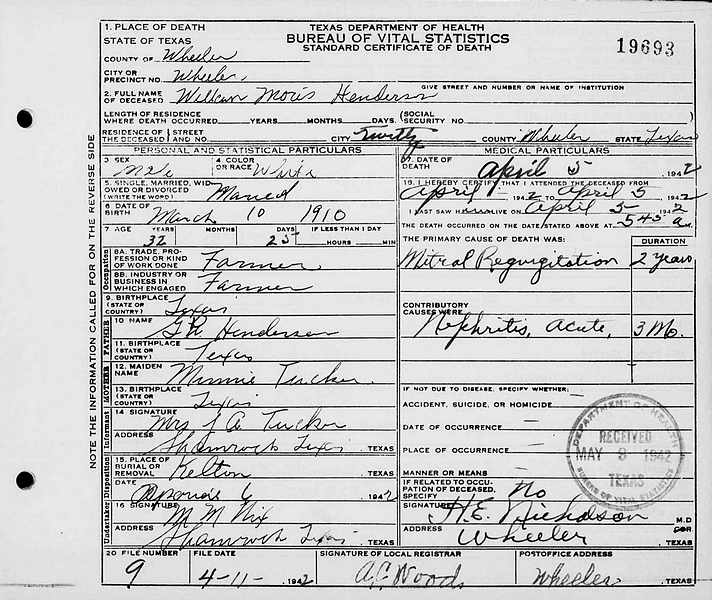 1. PLACE OF DEATH
STATE OF TEXAS
COUNTY OF Wheeler
CITY OR PRECINCT NO. Wheeler
TEXAS DEPARTMENT OF HEALTH
BUREAU OF VITAL STATISTICS
STANDARD CERTIFICATE OF DEATH
19693
GIVE STREET AND NUMBER OR NAME OF INSTITUTION
2. FULL NAME OF DECEASED Henderson
LENGTH OF RESIDENCE WHERE DEATH OCCURRED YEARS MONTHS DAYS (SOCIAL SECURITY NO.
RESIDENCE OF THE DECEASED STREET AND NO. CITY COUNTY Wheeler STATE Texas
PERSONAL AND STATISTICAL PARTICULARS
3. SEX Male 4. COLOR OR RACE White
5. SINGLE, MARRIED, WIDOWED OR DIVORCED (WRITE THE WORD) Married
6 DATE OF BIRTH March 10 1910
7 AGE YEARS MONTHS DAYS IF LESS THAN 1 DAY
32 25 HOURS MIN
Occupation
8A. TRADE, PROFESSION OR KIND OF WORK DONE Farmer
8B. INDUSTRY OR BUSINESS IN WHICH ENGAGED Farmer
9. BIRTHPLACE (STATE OR COUNTRY) Texas
FATHER
10 NAME Henderson
11. BIRTHPLACE (STATE OR COUNTRY) Texas
MOTHER
12. MAIDEN NAME Minnie Tucker
13. BIRTHPLACE (STATE OR COUNTRY) Texas
Informant
14 SIGNATURE Mrs J A Tucker
ADDRESS Shamrock Texas , TEXAS
Disposition
15. PLACE OF BURIAL OR REMOVAL Kelton , TEXAS
DATE 6 1942
Undertaker
16 SIGNATURE M M Nix
ADDRESS Shamrock Texas , TEXAS
MEDICAL PARTICULARS
17. DATE OF DEATH April 5 1942
18. I HEREBY CERTIFY THAT I ATTENDED THE DECEASED FROM
April 1942 TO April 5 1942
I LAST SAW H ALIVE ON April 5 1942
THE DEATH OCCURRED ON THE DATE STATED ABOVE AT 5 45 a M.
THE PRIMARY CAUSE OF DEATH WAS: DURATION
Mitral Regurgitation 2 Years
CONTRIBUTORY CAUSES WERE
Nephritis, acute, 3 Mo.
IF NOT DUE TO DISEASE, SPECIFY WHETHER:
ACCIDENT, SUICIDE, OR HOMICIDE
DATE OF OCCURRENCE
PLACE OF OCCURRENCE
MANNER OR MEANS
IF RELATED TO OCCUPATION OF DECEASED, SPECIFY No
SIGNATURE H.E. Nicholson M.D OR.
ADDRESS Wheeler , TEXAS
DEPARTMENT OF HEALTH
RECEIVED
MAY 8 1942
TEXAS
BUREAU OF VITAL STATISTICS
20 FILE NUMBER FILE DATE SIGNATURE OF LOCAL REGISTRAR POSTOFFICE ADDRESS
9 4-11- 1942 A.C. Woods Wheeler , TEXAS
NOTE THE INFORMATION CALLED FOR ON THE REVERSE SIDE